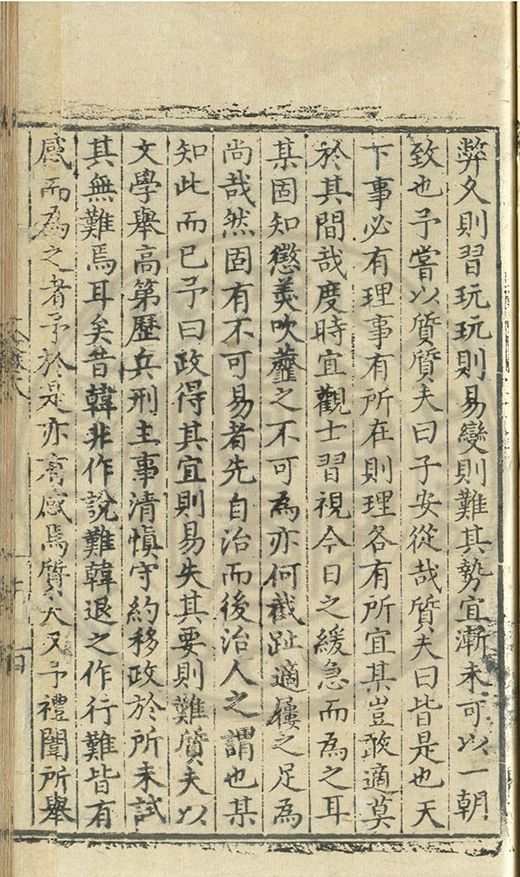 弊久則習玩玩則易變則難其勢宜漸未可以一朝
致也予嘗以質質夫曰子安從哉質夫曰皆是也天
下事必有理事有所在則理各有所宜某豈敢適莫
於其間哉度時宜觀士習視今日之緩急而為之耳
某固知懲羹吹虀之不可為亦何截趾適屨之足為
尚哉然固有不可易者先自治而後治人之謂也某
知此而已予曰政得其宜則易失其要則難質夫以
文學舉高第歷兵刑主事清慎守約移政於所未試
其無難焉耳矣昔韓非作說難韓退之作行難皆有
感而為之者予於是亦有感焉質夫又予禮闈所舉